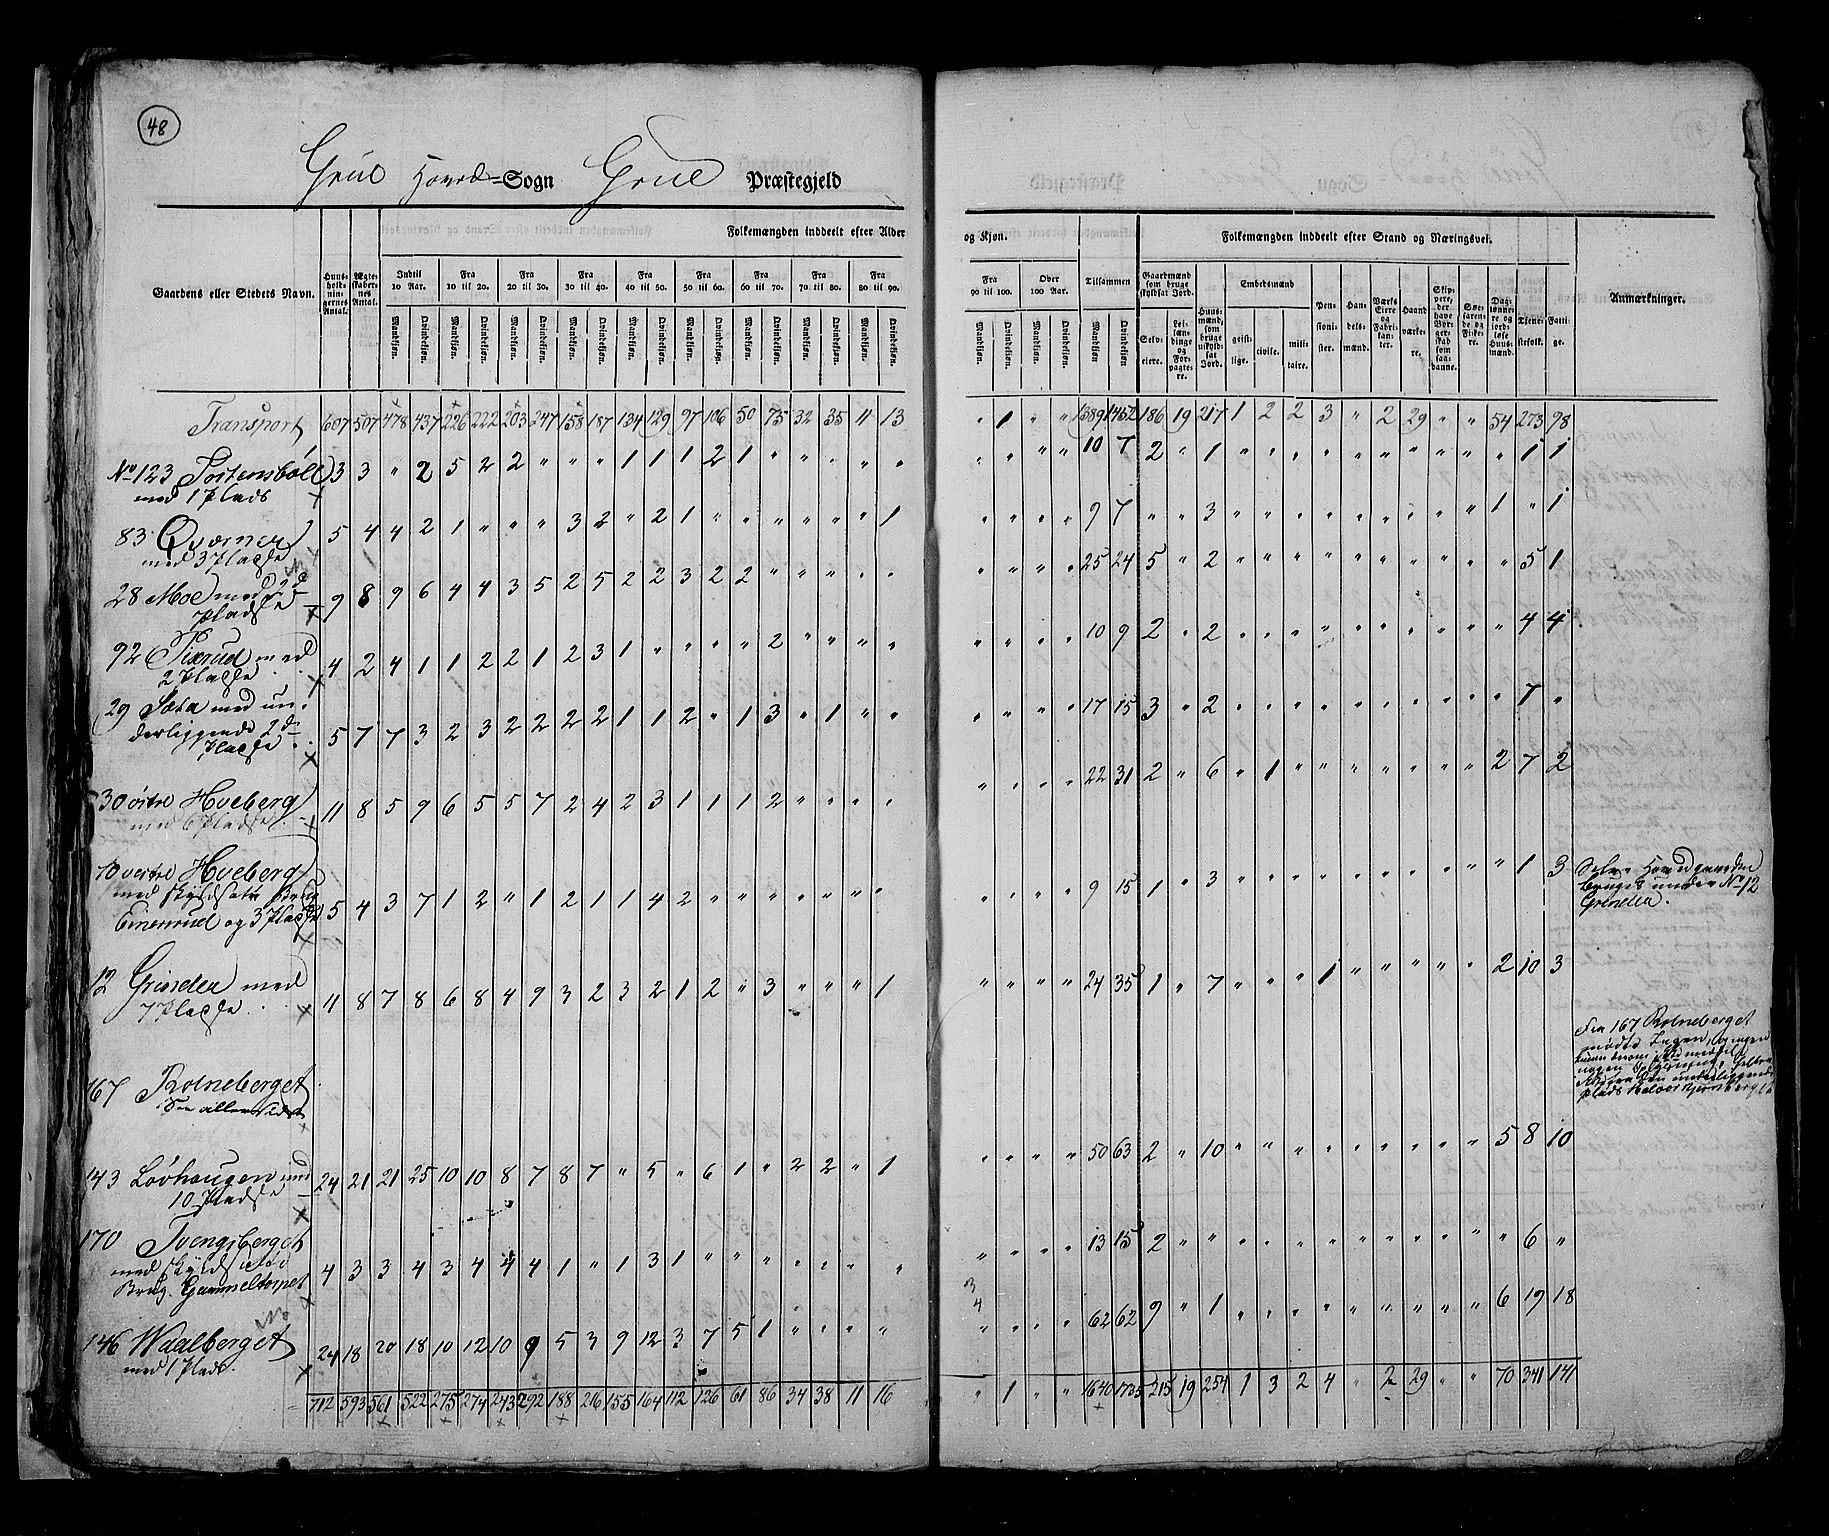 48
Grue Hoved-Sogn Grue Præstegjeld
Folkemængden inddeelt efter Alder
og Kjøn.
Folkemængden inddeelt efter Stand og Næringsvei.
Gaardens eller Stedets Navn.
Huus-holdningernes Antal. Ægteskabernes Antal.
Indtil 10 Aar. Fra 10 til 20. Fra 20 til 30. Fra 30 til 40. Fra 40 til 50. Fra 50 til 60. Fra 60 til 70. Fra 70 til 80. Fra 80 til 90.
Mandkjøn. Qvindekjøn. Mandkjøn. Qvindekjøn. Mandkjøn. Qvindekjøn. Mandkjøn. Qvindekjøn. Mandkjøn. Qvindekjøn. Mandkjøn. Qvindekjøn. Mandkjøn. Qvindekjøn. Mandkjøn. Qvindekjøn. Mandkjøn. Qvindekjøn.
Fra 90 til 100. Over 100 Aar. Tilsammen
Mandkjøn. Qvindekjøn. Mandkjøn. Qvindekjøn. Mandkjøn. Qvindekjøn.
Gaardmænd som bruge skyldsat Jord. Selveiere. Leilændinge og Forpagtere. Huusmænd, som bruge uskyldsat Jord. Embedsmænd geistlige. civile. militaire. Pensionister. Handelsmænd. Værks Eiere og Fabrikanter. Haandværkere. Skippere, der have Borgerskab som saadanne. Søefarende og Fiskere. Daglønnere og jordløse Huusmænd. Tjenestefolk. Fattige.
Anmærkninger.
Transport 607 507 478 437 226 222 203 247 158 187 134 129 97 106 50 73 32 35 11 13 " 1 " " 1389 1452 186 19 217 1 2 2 3 " 2 29 " " 54 273 98
No 123 Tostensbøll 3 3 " 2 5 2 2 " " " 1 1 1 2 1 " " " " " " " " " 10 7 2 " 1 " " " " " " " " " " 1 1
med 1 Plads
83 Qværner 5 4 4 2 1 " " " 3 2 " 2 1 " " " " " " 1 " " " " 9 7 " " 3 " " " " " " " " " 1 " 1
med 3 Pladse
28 Moe med 2de 9 8 9 6 4 4 3 5 2 5 2 2 3 2 2 " " " " " " " " " 25 24 5 " 2 " " " " " " " " " " 5 1
Pladse
92 Tixrud med 4 2 4 1 1 2 2 1 2 3 1 " " " " 2 " " " " " " " " 10 9 2 " 2 " " " " " " " " " " 4 4
2 Pladse
29 Sæta med un- 5 7 7 3 2 3 2 2 2 2 1 1 2 " 1 3 " 1 " " " " " " 17 15 3 " 2 " " " " " " " " " " 7 "
derliggende 2de
Pladse
30 østre Hveberg 11 8 5 9 6 5 5 7 2 4 2 3 1 1 1 2 " " " " " " " " 22 31 2 " 6 " 1 " " " " " " " 2 7 2
med 6 Pladse
10 vestre Hveberg
med skyldsatte Brug
Einerrud og 3 Pladse 5 4 3 7 1 2 " 1 2 1 1 4 2 " " " " " " " " " " " 9 15 1 " 3 " " " " " " " " " " 1 3
Selve Hovedgaarden
bruges under No 12
Grinden.
12 Grinden med 11 8 7 8 6 8 4 9 3 2 3 2 1 2 " 3 " " " 1 " " " " 24 35 1 " 7 " " " 1 " " " " " 2 10 3
7 Pladse
167 Rolneberget
See allersidst
Fra 167 Rolneberget
mødte Ingen, og ingen
143 Løvhaugen med 24 21 21 25 10 10 8 7 8 7 " 5 " 6 1 " 2 2 " 1 " " " " 50 63 2 " 10 " " " " " " " " " 5 8 10
10 Pladse
170 Tvengsberget
med skyldsatte
Brug. Gammeltorpet 4 3 3 4 3 4 4 4 1 " 1 3 1 " " " " " " " " " " " 13 15 2 " " " " " " " " " " " " 6 "
3
4
146 Waalberget 24 18 20 18 10 12 10 9 5 3 9 12 3 7 5 1 " " " " " " " " 62 62 9 " 1 " " " " " " " " " 6 19 18
med 1 Plads.
712 593 561 522 275 274 243 292 188 216 155 164 112 126 61 86 34 38 11 16 " 1 " " 1640 1735 215 19 254 1 3 2 4 " 2 29 " " 70 341 141